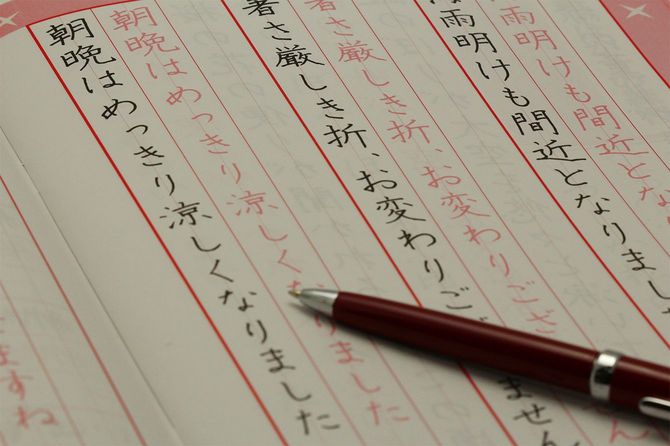 雨明けも間近とな
雨明けも間近となりまし
暑さ厳しき折、お変わりござ
暑さ厳しき折、お変わりご ません
朝晩はめっきり涼しくなりました
朝晩はめっきり涼しくなりました
ますね